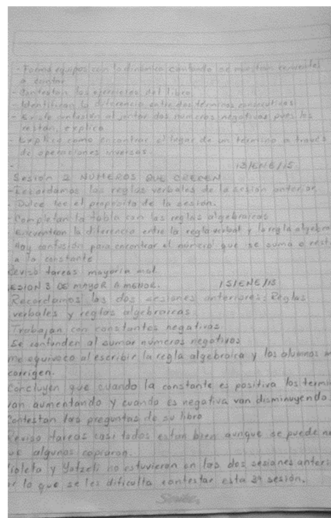 - Formo equipos con la dinámica contando se muestran renuentes
a contar
- Contestan los ejercicios del libro
- Identifican la diferencia entre dos términos consecutivos
- Existe confusión al juntar dos números negativos pues los
restan, explico
- Explico como encontrar el lugar de un término a través
de operaciones inversas.
15/ENE/15
SESION 2 NUMEROS QUE CRECEN
- Recordamos las reglas verbales de la sesión anterior
- Dulce lee el propósito de la sesión.
- Completan la tabla con las reglas algebraicas
- Encuentran la diferencia entre la regla verbal y la regla algebra
Hay confusión para encontrar el número que se suma o rest
a la constante
Reviso tareas mayoría mal.
SESION 3 DE MAYOR A MENOR. 15/ENE/15
Recordamos las dos sesiones anteriores: Reglas
verbales y reglas algebraicas
Trabajan con constantes negativas
Se confunden al sumar números negativos
me equivoco al escribir la regla algebraica y los alumnos m
corrigen.
Concluyen que cuando la constante es positiva los termin
van aumentando y cuando es negativa van disminuyendo.
Contestan las preguntas de su libro
Reviso tareas casi todos estan bien aunque se puede n
que algunos copiaron.
Violeta y Yatzeli no estuvieron en las dos sesiones anteri
por lo que se les dificulta contestar esta 3ª sesión.
Scribe